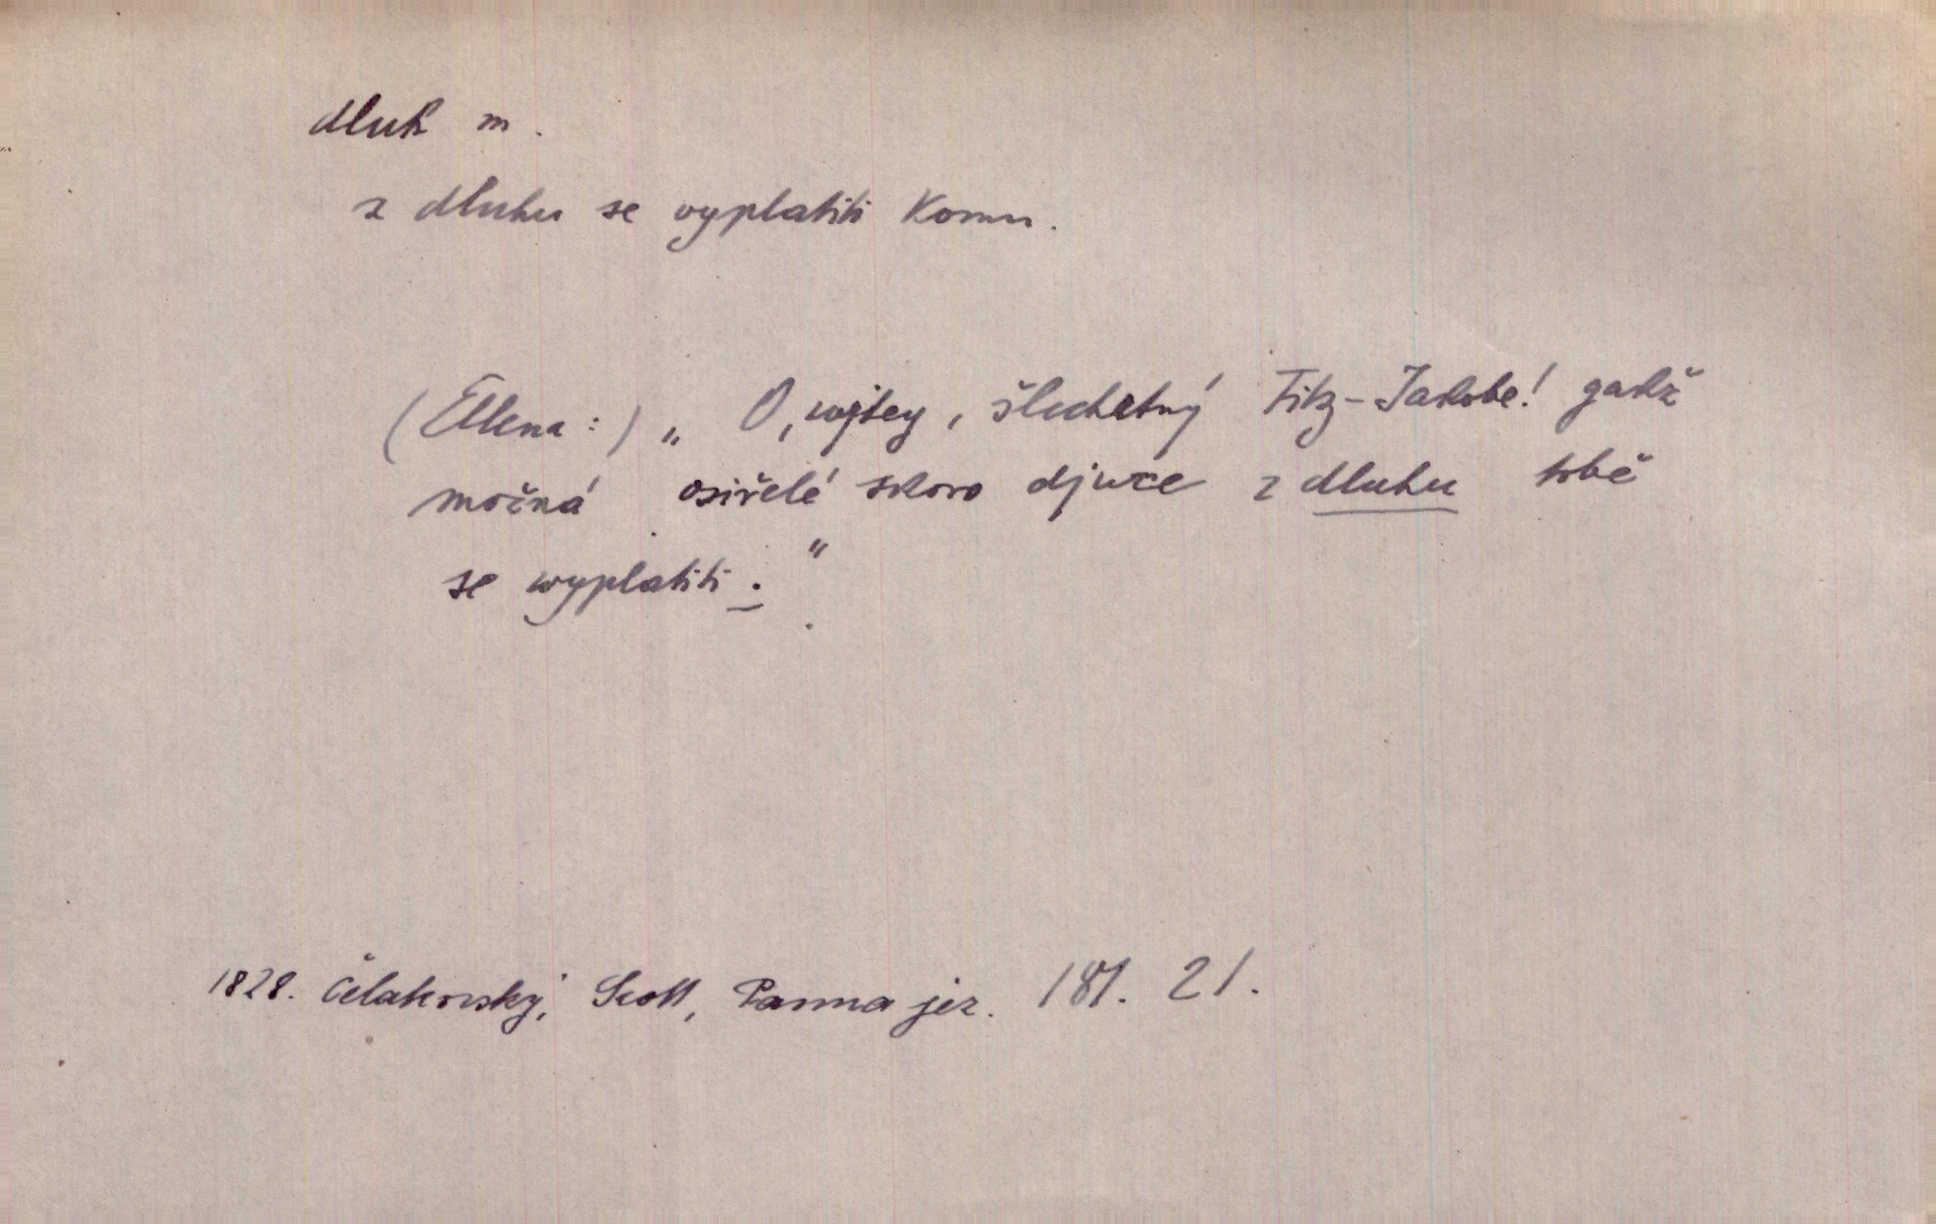 dluh m.
z dluhu se vyplatiti komu.
(Ellena:) „O, wjtey, šlechetný Fitz-Jakobe! gakž
možná osiřelé skoro djwce z dluhu tobě
se wyplatiti."
1828. Čelakovský, Scott, Panna jez. 181. 21.